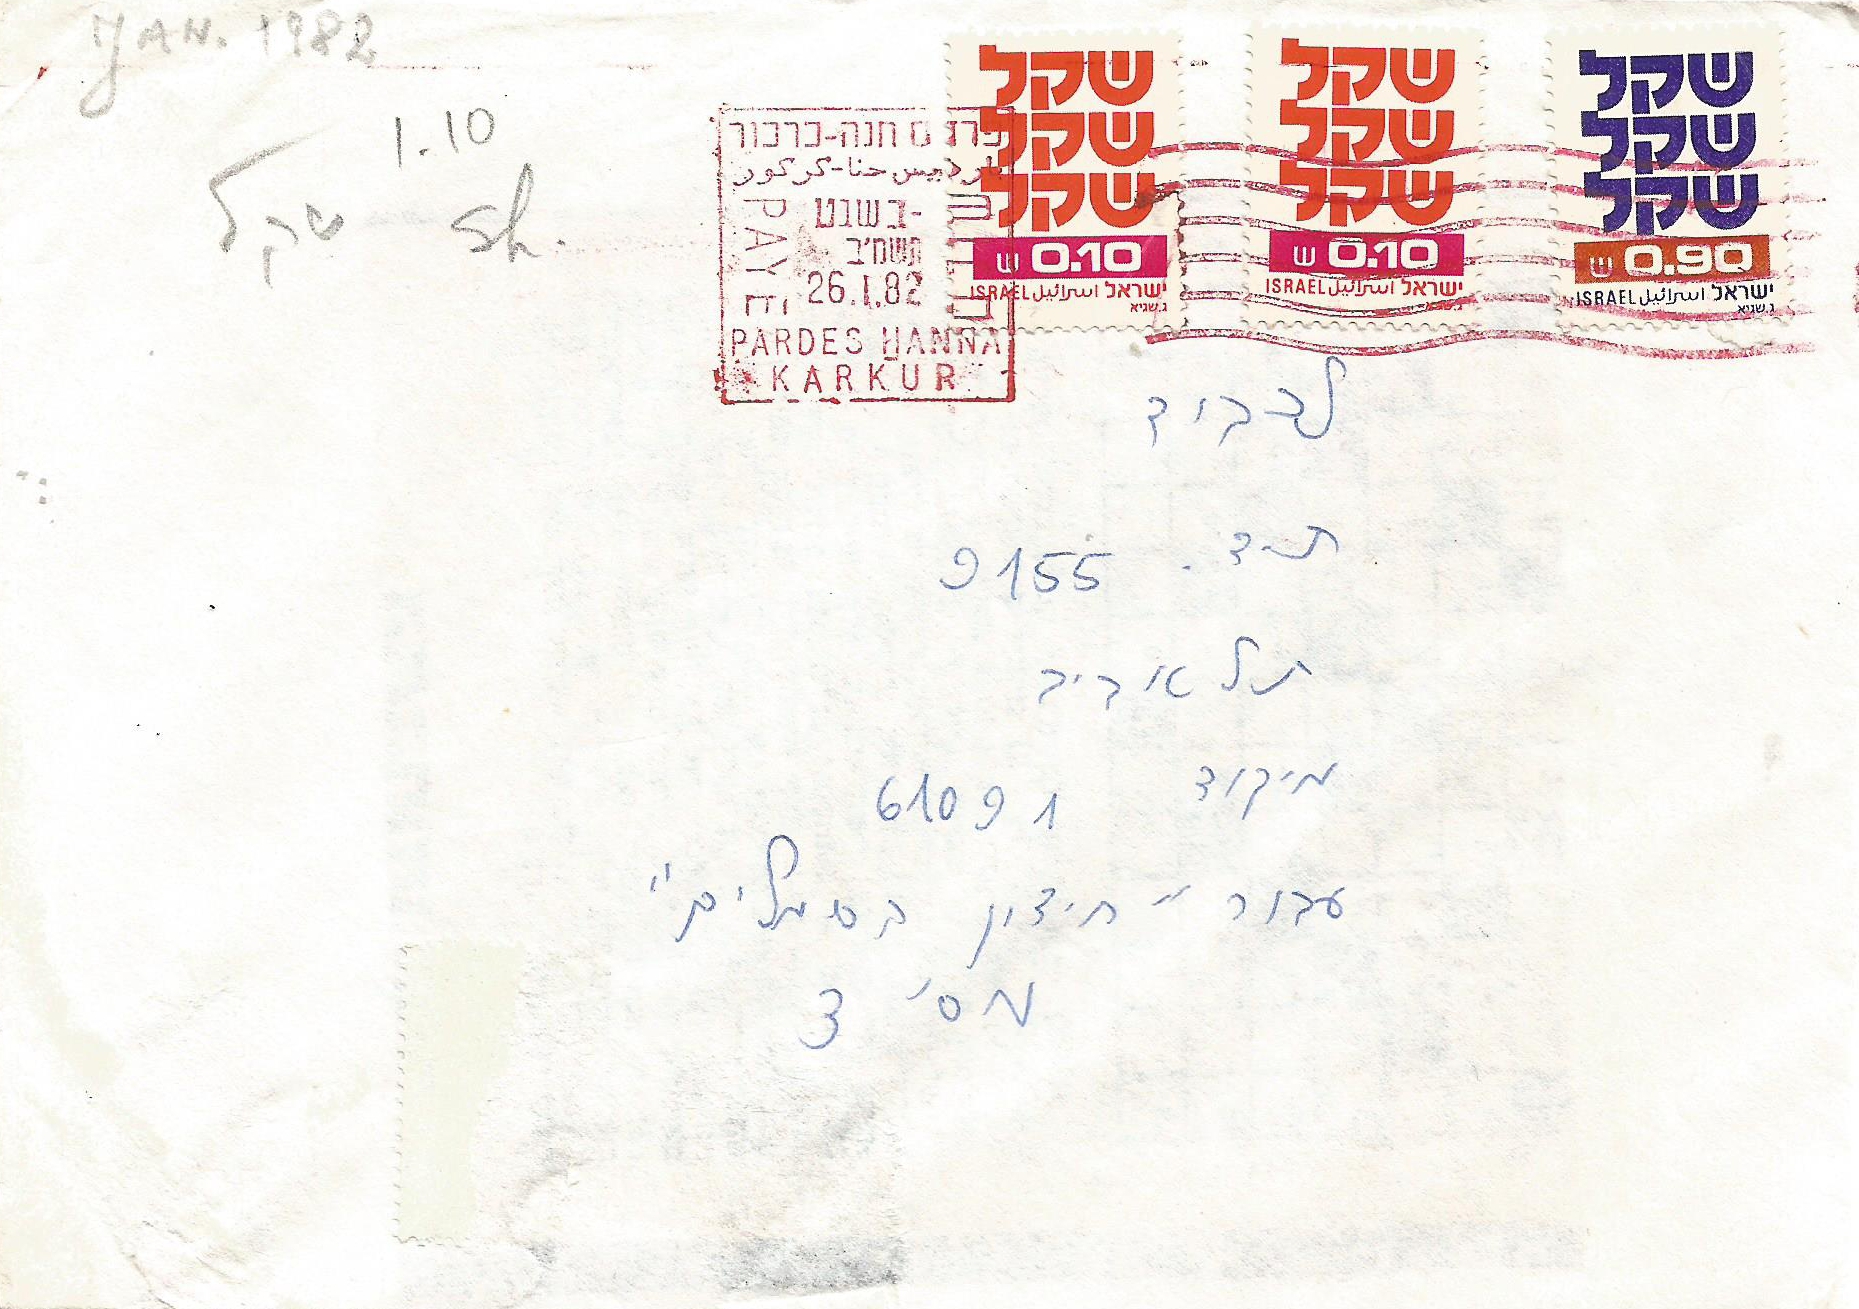 JAN. 1982
1.10
שקל sh.
שקל
שקל
שקל
ש 0.10
ISRAEL اسرائيل ישראל
ג.שגיא
שקל
שקל
שקל
ש 0.10
ISRAEL اسرائيل ישראל
ג.שגיא
שקל
שקל
שקל
ש 0.90
ISRAEL اسرائيل ישראל
ג.שגיא
פרדס חנה-כרכור
بارديس حنا-كركور
PAYÉ
ב׳ בשבט
תשמ״ב
26.I.82
PARDES HANNA
KARKUR
לכבוד
ת.ד. 9155
תל אביב
מיקוד 61091
עבור "חיצון בסמלים"
מס' 3